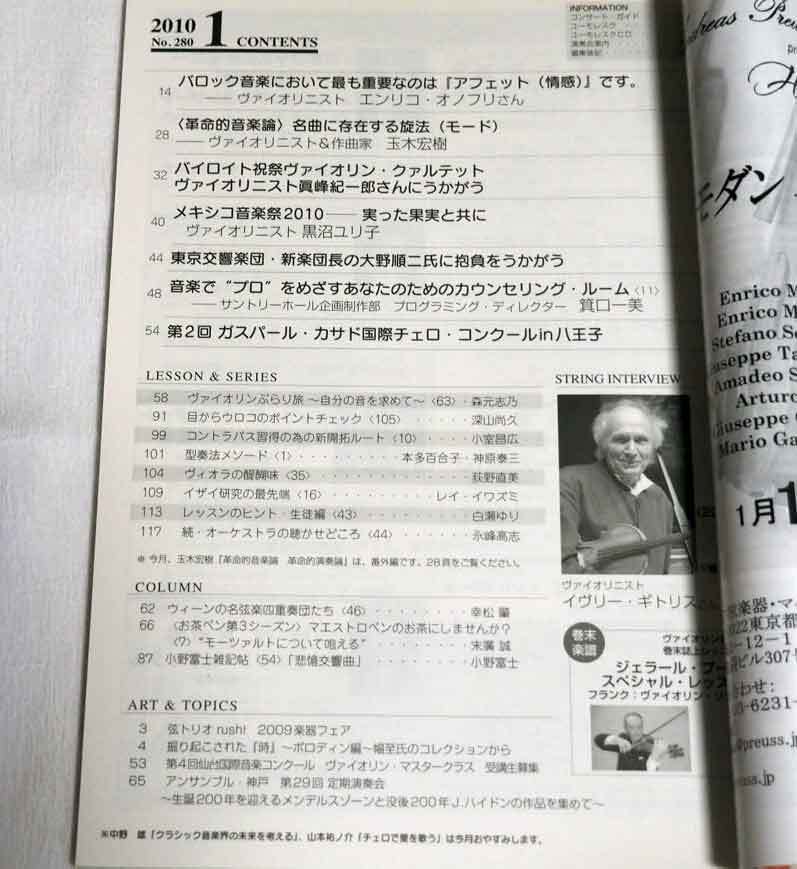 2010 1 CONTENTS
No. 280
INFORMATION
コンサート・ガイド
ユーモレスク
ユーモレスクCD
演奏会案内
編集後記
14 バロック音楽において最も重要なのは『アフェット（情感）』です。
―― ヴァイオリニスト エンリコ・オノフリさん
28 〈革命的音楽論〉名曲に存在する旋法（モード）
―― ヴァイオリニスト&作曲家 玉木宏樹
32 バイロイト祝祭ヴァイオリン・クァルテット
ヴァイオリニスト眞峰紀一郎さんにうかがう
40 メキシコ音楽祭2010―― 実った果実と共に
ヴァイオリニスト 黒沼ユリ子
44 東京交響楽団・新楽団長の大野順二氏に抱負をうかがう
48 音楽で“プロ”をめざすあなたのためのカウンセリング・ルーム〈11〉
――サントリーホール企画制作部 プログラミング・ディレクター 箕口一美
54 第2回 ガスパール・カサド国際チェロ・コンクールin八王子
LESSON & SERIES
58 ヴァイオリンぶらり旅 〜自分の音を求めて〜〈63〉・森元志乃
91 目からウロコのポイントチェック〈105〉・・・・・深山尚久
99 コントラバス習得の為の新開拓ルート〈10〉・・・・小室昌広
101 型奏法メソード〈1〉・・・・・・・・・本多百合子・神原泰三
104 ヴィオラの醍醐味〈35〉・・・・・・・・・・荻野直美
109 イザイ研究の最先端〈16〉・・・・・・・・レイ・イワズミ
113 レッスンのヒント・生徒編〈43〉・・・・・・・白瀬ゆり
117 続・オーケストラの聴かせどころ〈44〉・・・・・永峰高志
※ 今月、玉木宏樹「革命的音楽論 革命的演奏論」は、番外編です。28頁をご覧ください。
COLUMN
62 ウィーンの名弦楽四重奏団たち〈46〉・・・・・・・・幸松 肇
66 〈お茶ペン第3シーズン〉マエストロペンのお茶にしませんか？
〈7〉“モーツァルトについて吼える”・・・・・・・末廣 誠
87 小野富士雑記帖〈54〉「悲愴交響曲」・・・・・・・小野富士
ART & TOPICS
3 弦トリオ rush! 2009楽器フェア
4 掘り起こされた『時』〜ボロディン編〜幅至氏のコレクションから
53 第4回仙台国際音楽コンクール ヴァイオリン・マスタークラス 受講生募集
65 アンサンブル・神戸 第29回 定期演奏会
〜生誕200年を迎えるメンデルスゾーンと没後200年J.ハイドンの作品を集めて〜
※中野 雄「クラシック音楽界の未来を考える」、山本裕ノ介「チェロで愛を歌う」は今月おやすみします。
STRING INTERVIEW
ヴァイオリニスト
イヴリー・ギトリス
巻末楽譜
ヴァイオリン
巻末誌上レッ
ジェラール・プー
スペシャル・レッス
フランク：ヴァイオリン・ソ
モダン
Enrico
Enrico
Stefano
Amadeo
Arturo
Giuseppe
Mario
1月1
東京都
-12-1
ビル307
わせ:
-6231-
@preuss.j
uss.jp